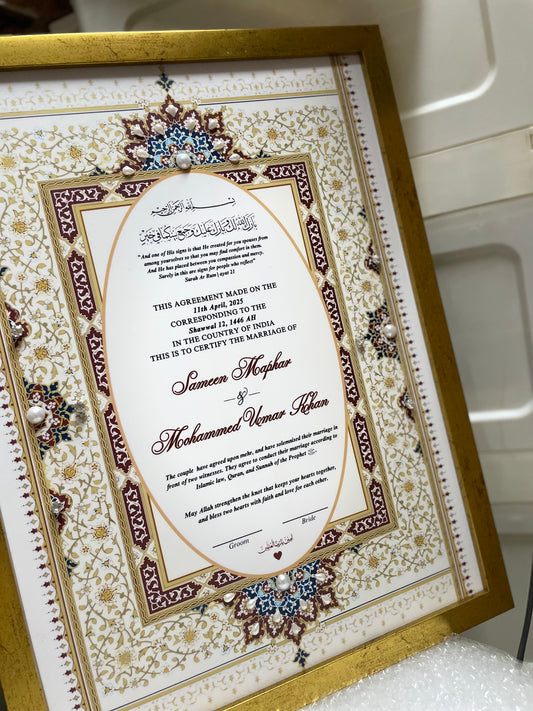 بسم الله الرحمن الرحيم
بارك الله لك وبارك عليك وجمع بينكما في خير
"And one of His signs is that He created for you spouses from
among yourselves so that you may find comfort in them.
And He has placed between you compassion and mercy.
Surely in this are signs for people who reflect"
Surah Ar Rum | ayat 21
THIS AGREEMENT MADE ON THE
11th April, 2025
CORRESPONDING TO THE
Shawwal 12, 1446 AH
IN THE COUNTRY OF INDIA
THIS IS TO CERTIFY THE MARRIAGE OF
Sameen Mapkar
&
Mohammed Umar Khan
The couple have agreed upon mehr, and have solemnised their marriage in
front of two witnesses. They agree to conduct their marriage according to
Islamic law, Quran, and Sunnah of the Prophet ﷺ
May Allah strengthen the knot that keeps your hearts together,
and bless two hearts with faith and love for each other.
Groom
Bride